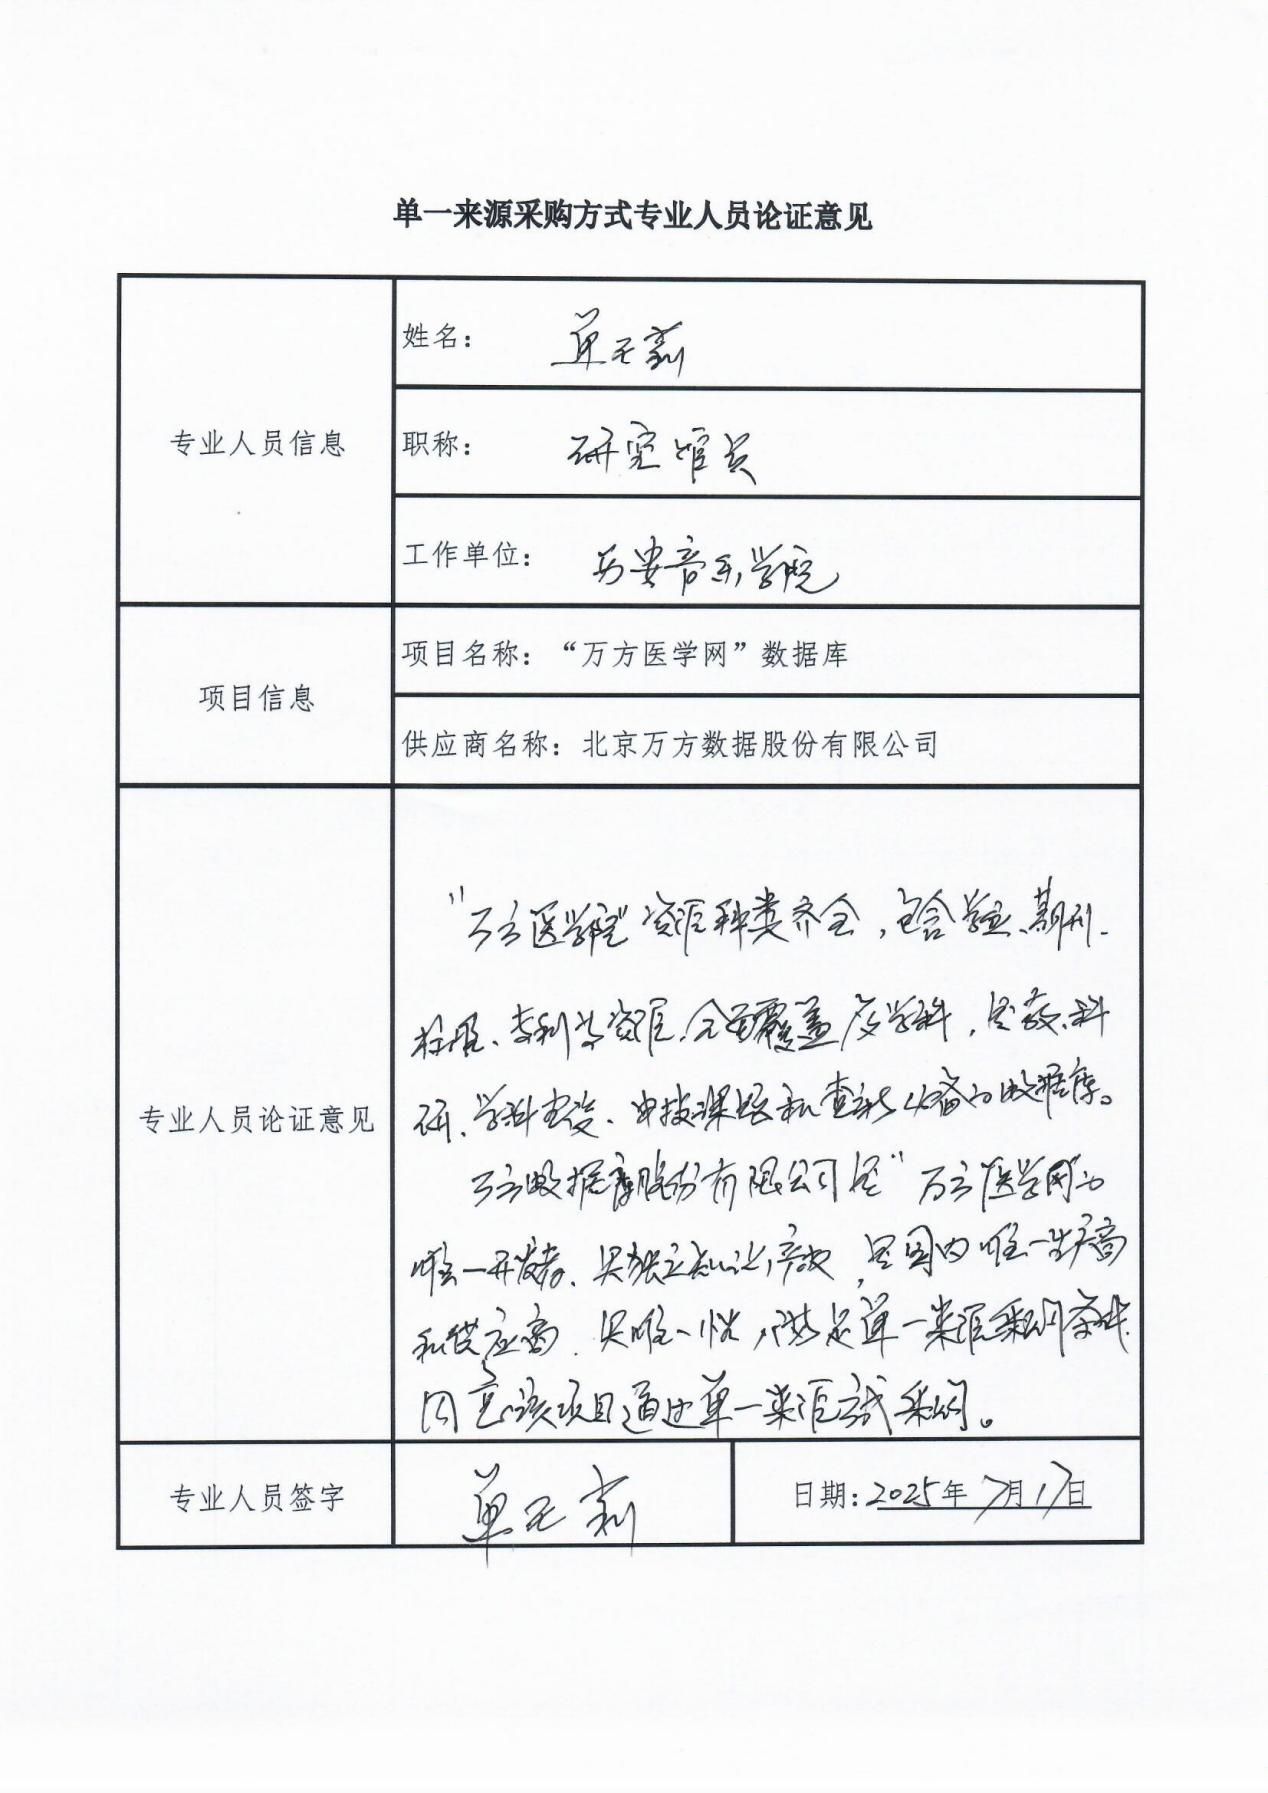 单一来源采购方式专业人员论证意见
专业人员信息
姓名： 单无莉
职称： 研究馆员
工作单位： 西安音乐学院
项目信息
项目名称：“万方医学网”数据库
供应商名称：北京万方数据股份有限公司
专业人员论证意见
“万方医学院”资源种类齐全，包含学位、期刊、
标准、专利等资源，全面覆盖多学科，是教、科
研、学科建设、申报课题和查新必备的数据库。
万方数据库股份有限公司是“万方医学网”的
唯一开发者、具独立知识产权，是国内唯一生产商
和供应商，具唯一性，满足单一来源采购条件
同意该项目通过单一来源方式采购。
专业人员签字
单无莉
日期：2025年7月17日